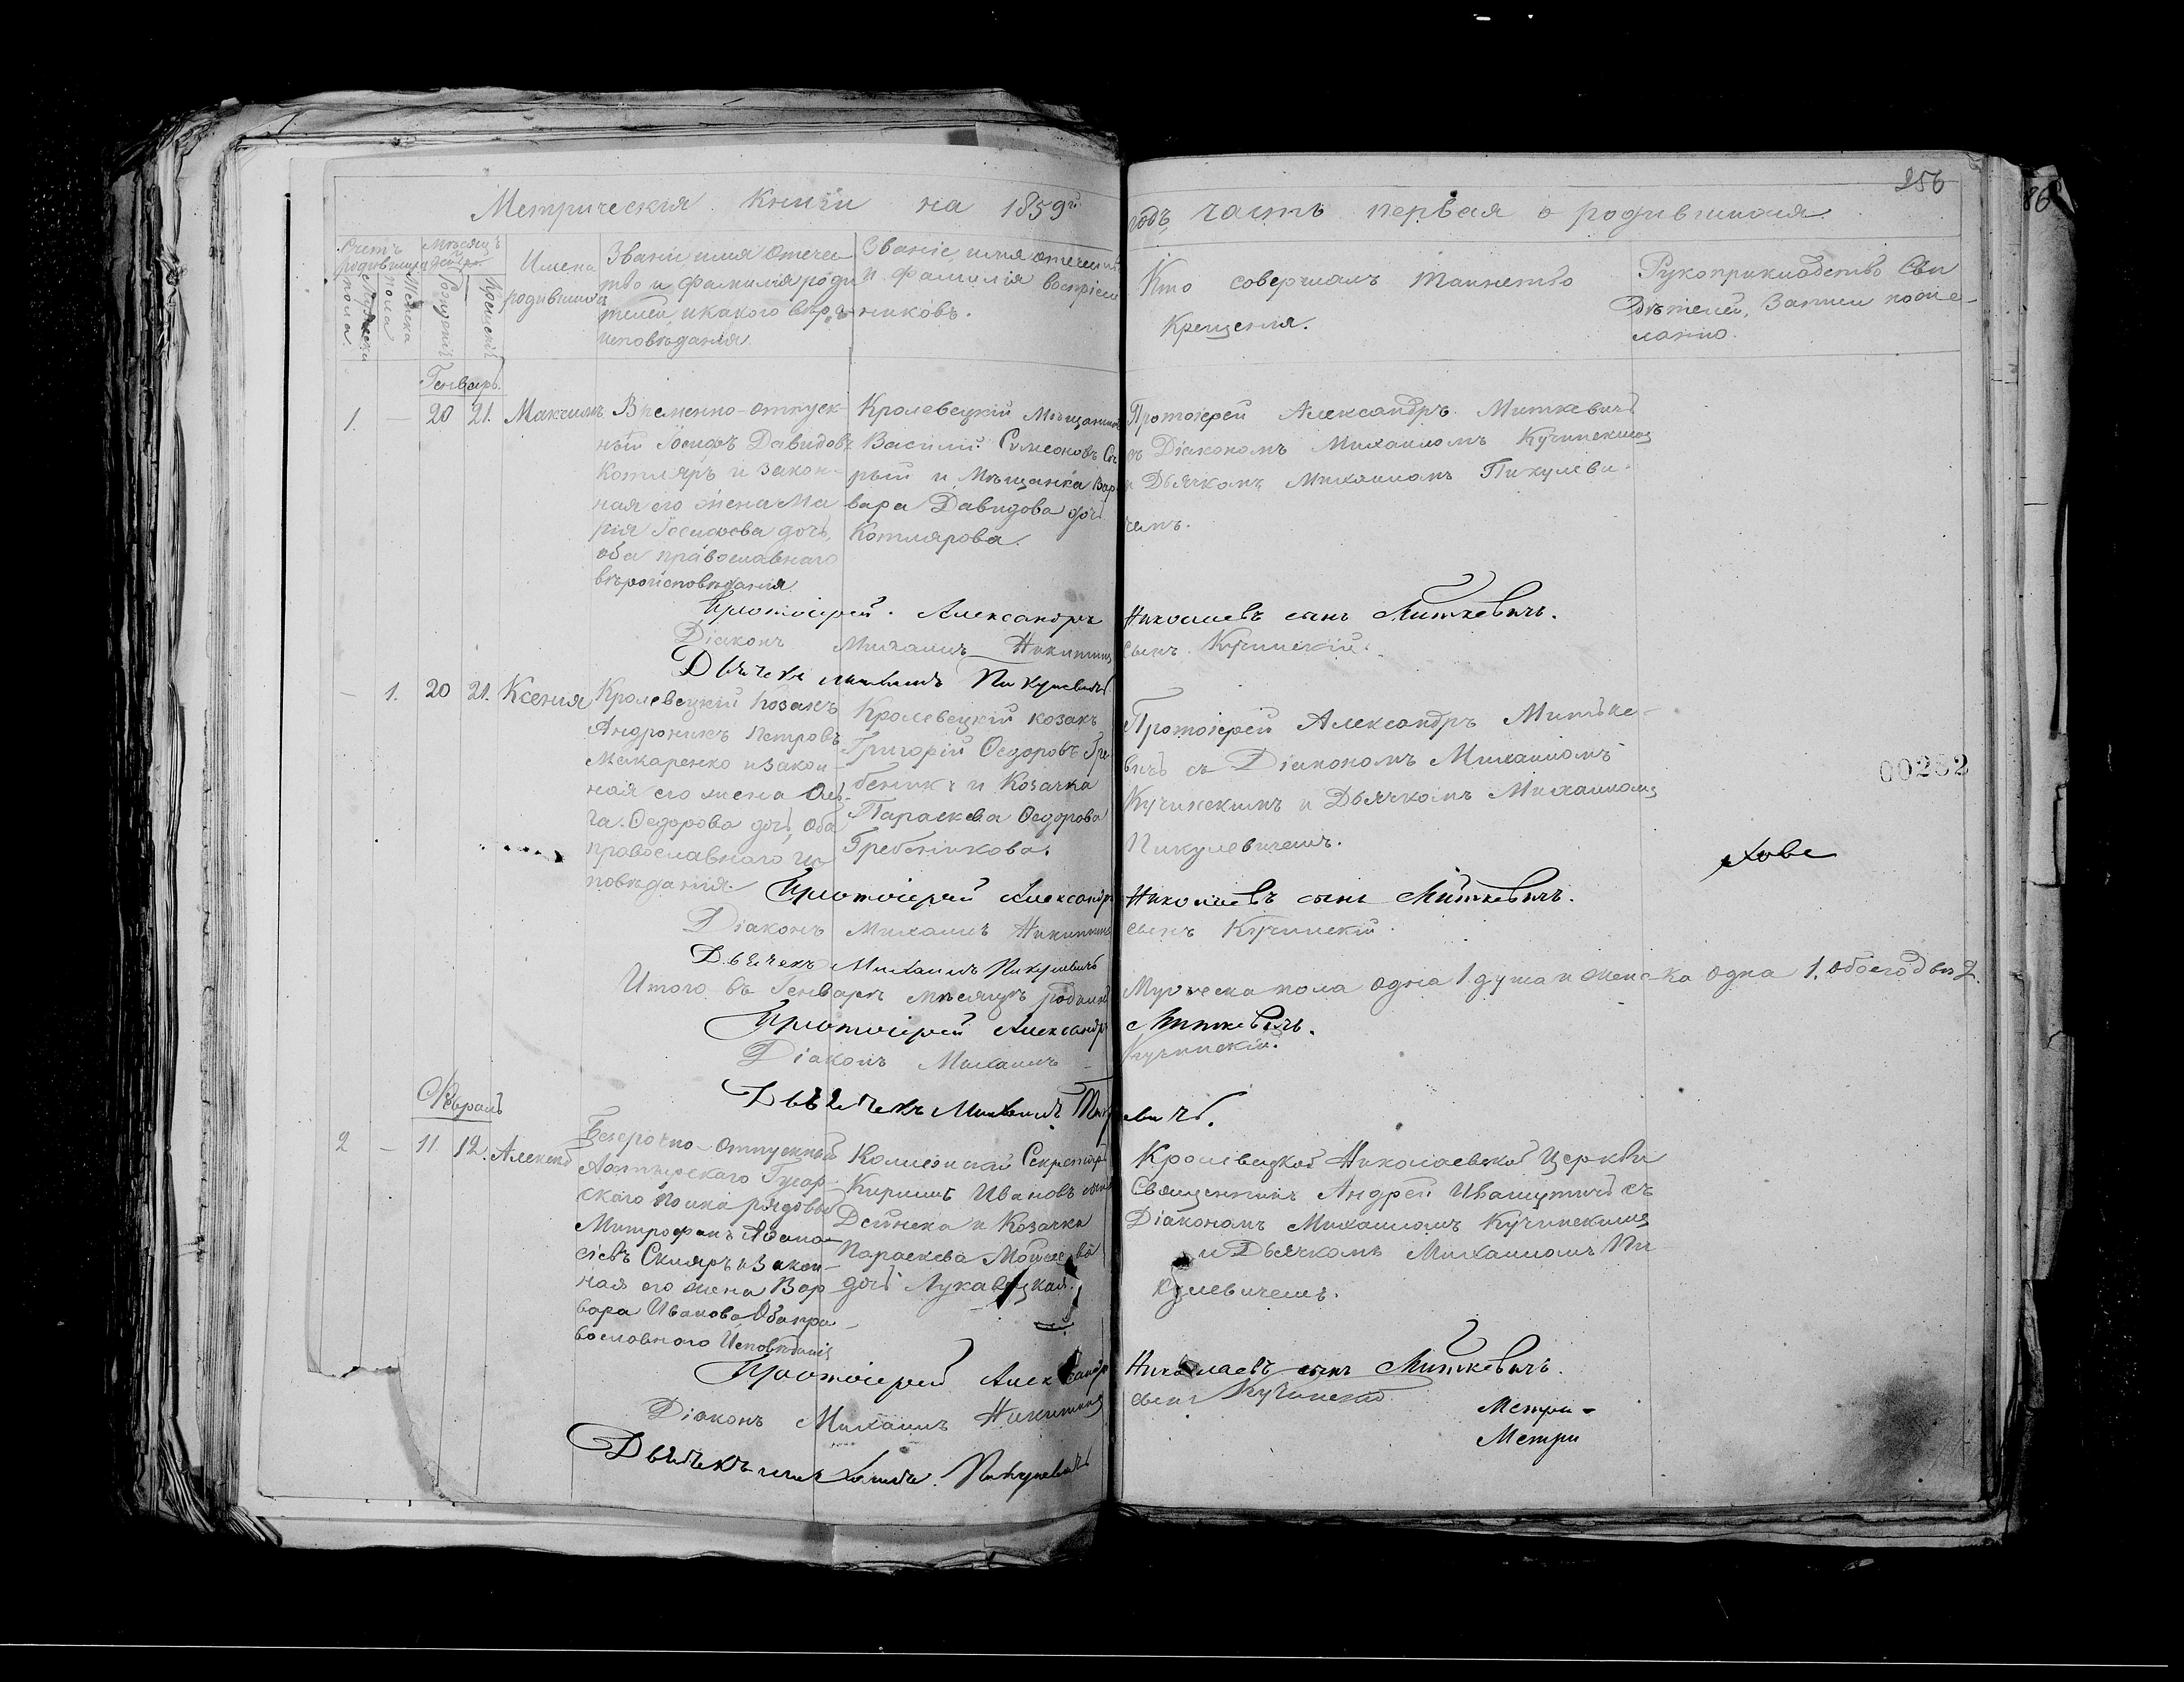 256
86
Метрическія Книги на 1859й
годъ, часть первая о родившихся.
Счетъ родившихся
Мужеска пола
Женска
Мѣсяцъ и день
Рожденія
Крещенія
Имена
родившихся
Званіе, имя отечес
тво и фамилія роди
телей, и какого вѣро
исповѣданія.
Званіе, имя отечество
и фамилія воспріем
никовъ.
Кто совершалъ таинство
Крещенія.
Рукоприкладство Сви
дѣтелей, Записи по же-
ланію.
Генварь.
1. — 20 21. Максимъ
Временно-отпуск-
ный Іосифъ Давидовъ
Котляръ и закон-
ная его жена Ма
рія Іосифова дочь,
оба православнаго
вѣроисповѣданія.
Кролевецкій Мѣщанинъ
Василій Симеоновъ
рый и Мѣщанка Вар
вара Давидова дочь
Котлярова.
Протоіерей Александръ Миткевичъ
съ Діакономъ Михаиломъ Кучинскимъ
и Дьячкомъ Михаиломъ Пикулеви-
чемъ.
Протоіерей Александръ Николаевъ сынъ Миткевичъ.
Діаконъ Михаилъ Никитинъ сынъ Кучинскій.
Дьячекъ Михаилъ Пикулевичъ
— 1. 20 21. Ксенія
Кролевецкій Козакъ
Андроникъ Петровъ
Макаренко и закон-
ная его жена Оль-
га Ѳедорова дочь, оба
православнаго ис-
повѣданія.
Кролевецкій козакъ
Григорій Ѳедоровъ Гре-
беникъ и Козачка
Параскева Ѳедорова
Гребеникова.
Протоіерей Александръ Митьке-
вичъ съ Діакономъ Михаиломъ
Кучинскимъ и Дьячкомъ Михаиломъ
Пикулевичемъ.
00282
Протоіерей Александръ Николаевъ сынъ Миткевичъ.
Діаконъ Михаилъ Никитинъ сынъ Кучинскій.
Дьячекъ Михаилъ Пикулевичъ
Итого въ Генварѣ мѣсяцѣ родилось Мужеска пола одна 1. душа и женска одна 1. обоего двѣ 2.
Протоіерей Александръ Миткевичъ.
Діаконъ Михаилъ Кучинскій.
Дьячекъ Михаилъ Пикулевичъ.
Февраль
2 — 11. 12. Алексѣй
Безсрочно-отпускный
Ахтырскаго Гусар-
скаго Полка рядовый
Митрофанъ Аѳана-
сіевъ Скляръ и закон-
ная его жена Вар
вара Иванова, Оба пра-
вославнаго Исповѣданія
Коллежскій Секретарь
Кириллъ Ивановъ сынъ
Дейнека и Козачка
Параскева Моисеева
дочь Лукавецкая.
Кролевецкой Николаевской Церкви
Священникъ Андрей Ивашутичъ съ
Діакономъ Михаиломъ Кучинскимъ
и Дьячкомъ Михаиломъ Пи
кулевичемъ.
Протоіерей Александръ Николаевъ сынъ Миткевичъ.
Діаконъ Михаилъ Никитинъ сынъ Кучинскій
Дьячекъ Михаилъ Пикулевичъ
Метри-
Метри